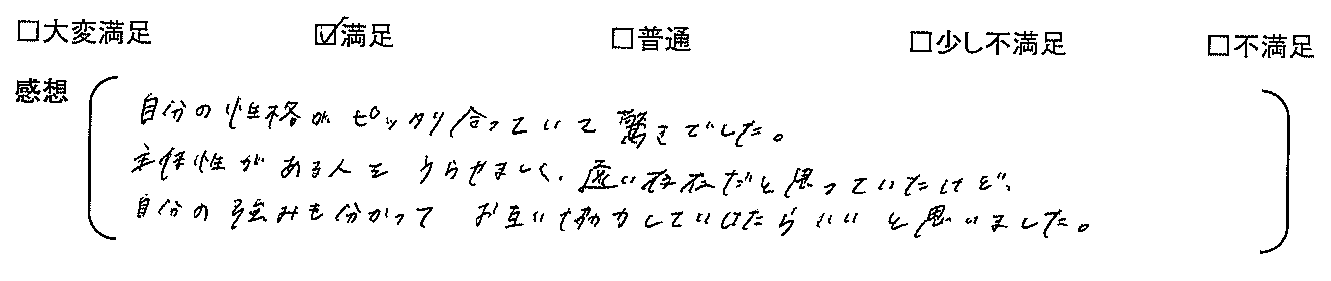 □大変満足 ☑満足 □普通 □少し不満足 □不満足
感想
自分の性格がピッタリ合っていて驚きでした。
主体性がある人をうらやましく、遠い存在だと思っていたけど、
自分の強みも分かって お互い協力していけたらいいと思いました。